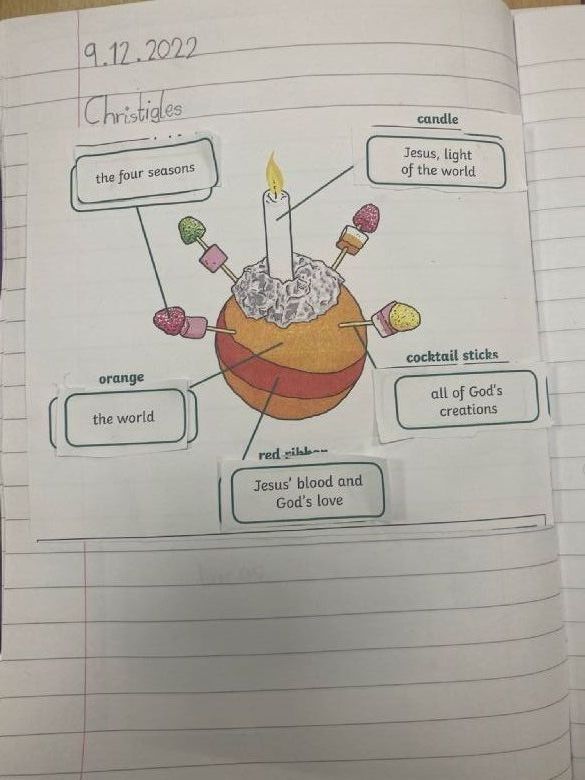 9.12.2022
Christigles
the four seasons
candle
Jesus, light
of the world
orange
the world
cocktail sticks
all of God's
creations
red ribbon
Jesus' blood and
God's love